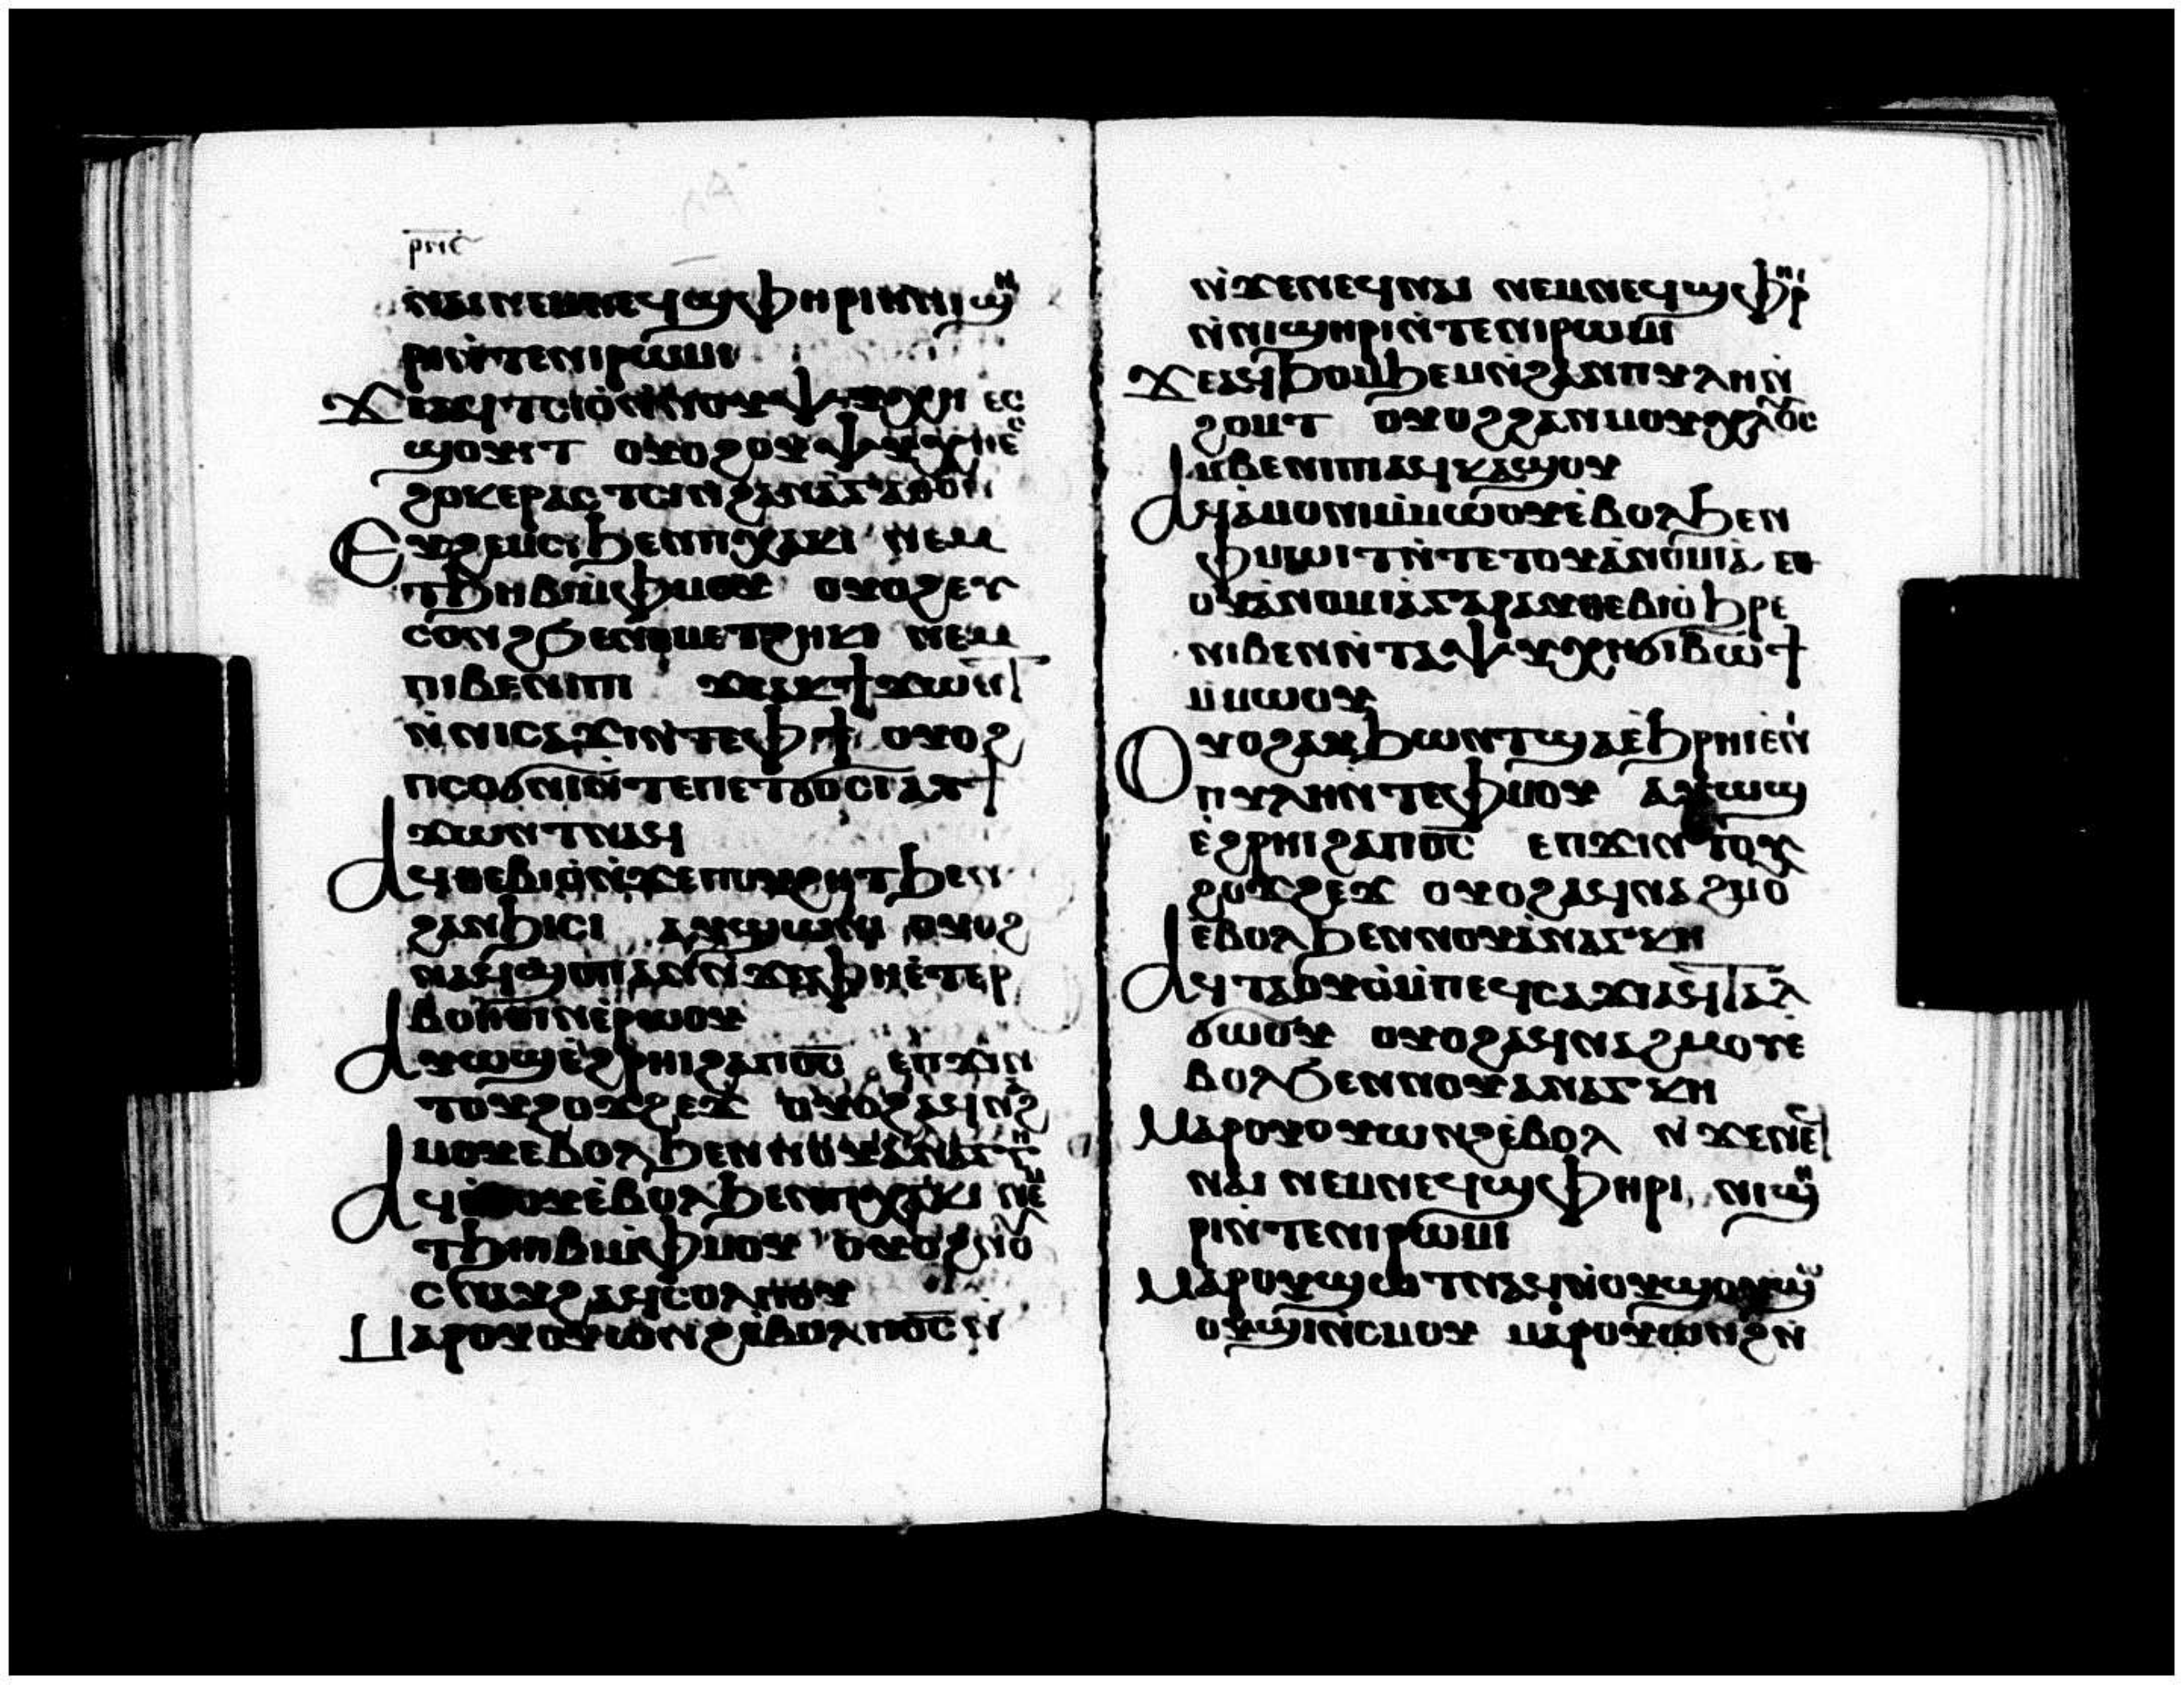 ⲣⲛⲋ
ⲛⲁⲓⲛⲉⲙⲛⲉϥϣⲫⲏⲣⲓⲛⲛⲓϣⲏ
ⲣⲓⲛ̀ⲧⲉⲛⲓⲣⲱⲙⲓ
ϫⲉⲁϥⲧⲥⲓⲟⲛ̀ⲛⲟⲩⲯⲩⲭⲏ ⲉⲥ
ϣⲟⲩⲓⲧ ⲟⲩⲟϩⲟⲩⲯⲩⲭⲏⲉⲥ
ϩⲟⲕⲉⲣⲁⲥⲧⲥⲓⲛϩⲁⲛⲁⲅⲁⲑⲟⲛ
ⲉⲩϩⲉⲙⲥⲓϧⲉⲛⲡⲭⲁⲕⲓ ⲛⲉⲙ
ⲧϧⲏⲃⲓⲙ̀ⲫⲙⲟⲩ ⲟⲩⲟϩⲉⲩ
ⲥⲟⲛϩϧⲉⲛⲟⲩⲙⲉⲧϩⲏⲕⲓ ⲛⲉⲙ
ⲡⲓⲃⲉⲛⲓⲡⲓ ϫⲉⲁⲩϯϫⲱⲛⲧ
ⲛ̀ⲛⲓⲥⲁϫⲓⲛ̀ⲧⲉⲫϯ ⲟⲩⲟϩ
ⲡⲥⲟϭⲛⲓⲛ̀ⲧⲉⲡⲉⲧϭⲟⲥⲓⲁⲩϯ
ϫⲱⲛⲧⲛⲁϥ
ⲁϥⲑⲉⲃⲓⲟⲛ̀ϫⲉⲡⲟⲩϩⲏⲧϧⲉⲛ
ϩⲁⲛϧⲓⲥⲓ ⲁⲩϣⲱⲛⲓ ⲟⲩⲟϩ
ⲛⲁϥϣⲟⲡⲁⲛⲛ̀ϫⲉⲫⲏⲉ̀ⲧⲉⲣ
ⲃⲟⲏⲑⲓⲛⲉ̀ⲣⲱⲟⲩ
ⲁⲩⲱϣⲉ̀ϩⲣⲏⲓϩⲁⲡⲟ̅ⲥ̅ ⲉⲡϫⲓⲛ
ⲧⲟⲩϩⲟϫϩⲉϫ ⲟⲩⲟϩⲁϥⲛⲁϩ
ⲙⲟⲩⲉⲃⲟⲗϧⲉⲛⲛⲟⲩⲁⲛⲁⲅⲕⲏ
ⲁϥⲉⲛⲟⲩⲉ̀ⲃⲟⲗϧⲉⲛⲡⲭⲁⲕⲓ ⲛⲉⲙ
ⲧϧⲏⲃⲓⲙ̀ⲫⲙⲟⲩ ⲟⲩⲟϩⲛⲟⲩ
ⲥⲛⲁⲩϩⲁϥⲥⲟⲗⲡⲟⲩ
ⲙⲁⲣⲟⲩⲟⲩⲱⲛϩⲉ̀ⲃⲟⲗⲡⲟ̅ⲥ̅ⲛ̀
ⲛ̀ϫⲉⲛⲉϥⲛⲁⲓ ⲛⲉⲙⲛⲉϥϣⲫⲏⲣⲓ
ⲛ̀ⲛⲓϣⲏⲣⲓⲛ̀ⲧⲉⲛⲓⲣⲱⲙⲓ
ϫⲉⲁϥϧⲟⲙϧⲉⲙⲛ̀ϩⲁⲛⲡⲩⲗⲏⲛ̀
ϩⲟⲙⲧ ⲟⲩⲟϩϩⲁⲛⲙⲟⲩⲭⲗⲟⲥ
ⲙ̀ⲃⲉⲛⲓⲡⲓⲁϥⲕⲁϣⲟⲩ
ⲁϥⲁ̀ⲙⲟⲛⲓⲙ̀ⲙⲱⲟⲩⲉ̀ⲃⲟⲗϧⲉⲛ
ⲫⲙⲱⲓⲧⲛ̀ⲧⲉⲧⲟⲩⲁ̀ⲛⲟⲙⲓⲁ̀ ⲉⲑ
ⲟⲩⲁ̀ⲛⲟⲙⲓⲁⲅⲁⲣⲁⲩⲑⲉⲃⲓⲟ̀ ϧⲣⲉ
ⲛⲓⲃⲉⲛⲛ̀ⲧⲁⲯⲩⲭⲏϭⲓⲃⲱϯ
ⲙ̀ⲙⲱⲟⲩ
ⲟⲩⲟϩⲁⲩϧⲱⲛⲧϣⲁⲉ̀ϧⲣⲏⲓⲉⲛⲓ
ⲡⲩⲗⲏⲛ̀ⲧⲉⲫⲙⲟⲩ ⲁⲩⲱϣ
ⲉ̀ϩⲣⲏⲓϩⲁⲡⲟ̅ⲥ̅ ⲉⲡϫⲓⲛⲧⲟⲩ
ϩⲟϫϩⲉϫ ⲟⲩⲟϩⲁϥⲛⲁϩⲙⲟⲩ
ⲉ̀ⲃⲟⲗϧⲉⲛⲛⲟⲩⲁ̀ⲛⲁⲅⲕⲏ
ⲁϥⲧⲁⲟⲩⲟ̀ⲙ̀ⲡⲉϥⲥⲁϫⲓⲁϥⲧⲁⲗ
ϭⲱⲟⲩ ⲟⲩⲟϩⲁϥⲛⲁϩⲙⲟⲩⲉ
ⲃⲟⲗϧⲉⲛⲛⲟⲩⲁⲛⲁⲅⲕⲏ
ⲙⲁⲣⲟⲩⲟⲩⲱⲛϩⲉ̀ⲃⲟⲗ ⲛ̀ϫⲉⲛⲉϥ
ⲛⲁⲓ ⲛⲉⲙⲛⲉϥϣⲫⲏⲣⲓ, ⲛⲓϣⲏ
ⲣⲓⲛ̀ⲧⲉⲛⲓⲣⲱⲙⲓ
ⲙⲁⲣⲟⲩϣⲱⲧⲛⲁϥⲛ̀ⲟⲩϣⲟⲩϣⲱ
ⲟⲩϣⲓⲛⲥⲙⲟⲩ ⲙⲁⲣⲟⲩⲱⲛϩⲛ